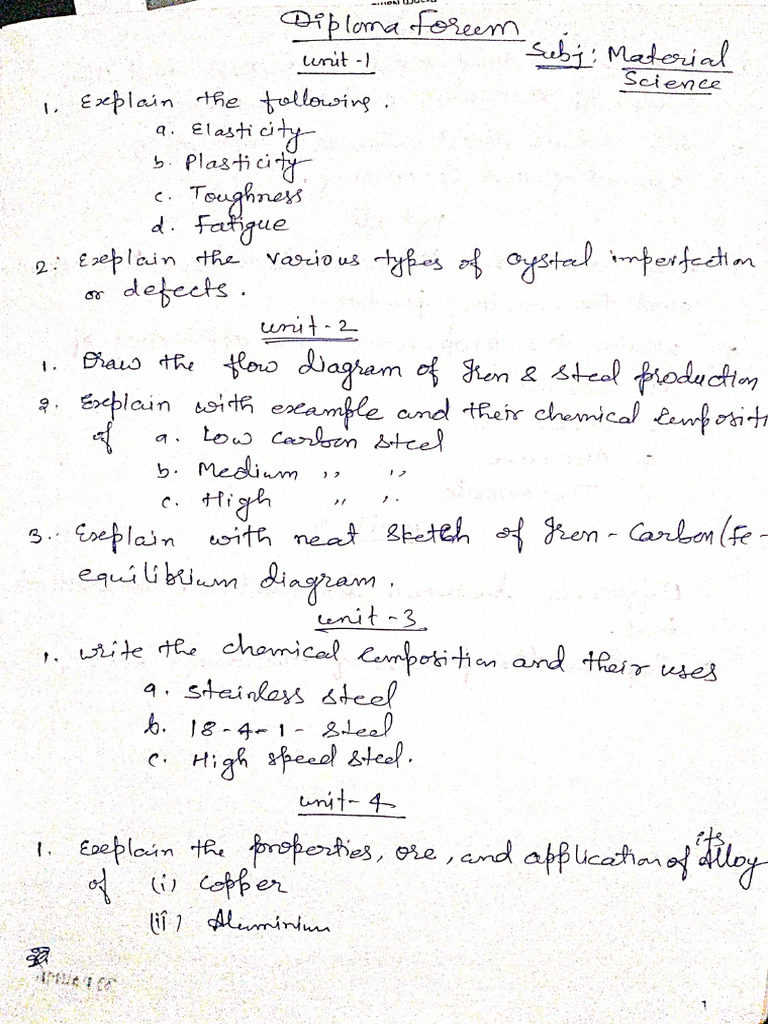 Diploma Foreem
Subj: Material
Science
unit-1
1. Explain the following.
a. Elasticity
b. Plasticity
c. Toughness
d. Fatigue
2. Explain the various types of cystal imperfection
or defects.
unit-2
1. Draw the flow diagram of Iron & Steel production
2. Explain with example and their chemical Compositi
of a. Low Carbon Steel
b. Medium ,, ,,
c. High ,, ,,
3. Explain with neat Sketch of Iron-Carbon (Fe-
equilibrium diagram.
unit-3
1. Write the chemical Composition and their uses
a. Stainless Steel
b. 18-4-1- Steel
c. High speed Steel.
unit-4
1. Explain the properties, ore, and application of its Alloy
of (i) Copper
(ii) Aluminium
1